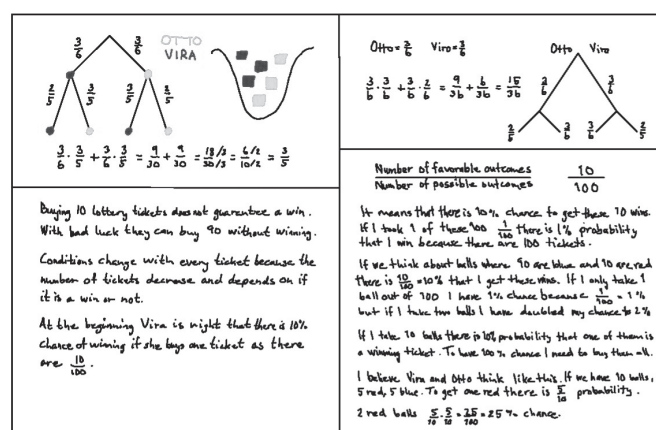 3/6 3/6 OTTO
VIRA
2/5 3/5 3/5 2/5
3/6 · 3/5 + 3/6 · 3/5 = 9/30 + 9/30 = 18/3 / 30/3 = 6/2 / 10/2 = 3/5
Buying 10 lottery tickets does not guarantee a win.
With bad luck they can buy 90 without winning.
Conditions change with every ticket because the
number of tickets decrease and depends on if
it is a win or not.
At the beginning Vira is right that there is 10%
chance of winning if she buys one ticket as there
are 10/100.
Otto = 3/6 Vira = 3/6
Otto Vira
3/6 · 3/6 + 3/6 · 2/6 = 9/36 + 6/36 = 15/36
3/6 3/6
2/6 3/6 3/6
Number of favorable outcomes 10
Number of possible outcomes 100
It means that there is 10% chance to get these 10 wins.
If I took 1 of these 100 1/100 there is 1% probability
that I win because there are 100 tickets.
If we think about balls where 90 are blue and 10 are red
there is 10/100 = 10% that I get these wins. If I only take 1
ball out of 100 I have 1% chance because 1/100 = 1%
but if I take two balls I have doubled my chance to 2%
If I take 10 balls there is 10% probability that one of them is
a winning ticket. To have 100% chance I need to buy them all.
I believe Vira and Otto think like this. If we have 10 balls,
5 red, 5 blue. To get one red there is 5/10 probability.
2 red balls 5/10 · 5/10 = 25/100 = 25% chance.